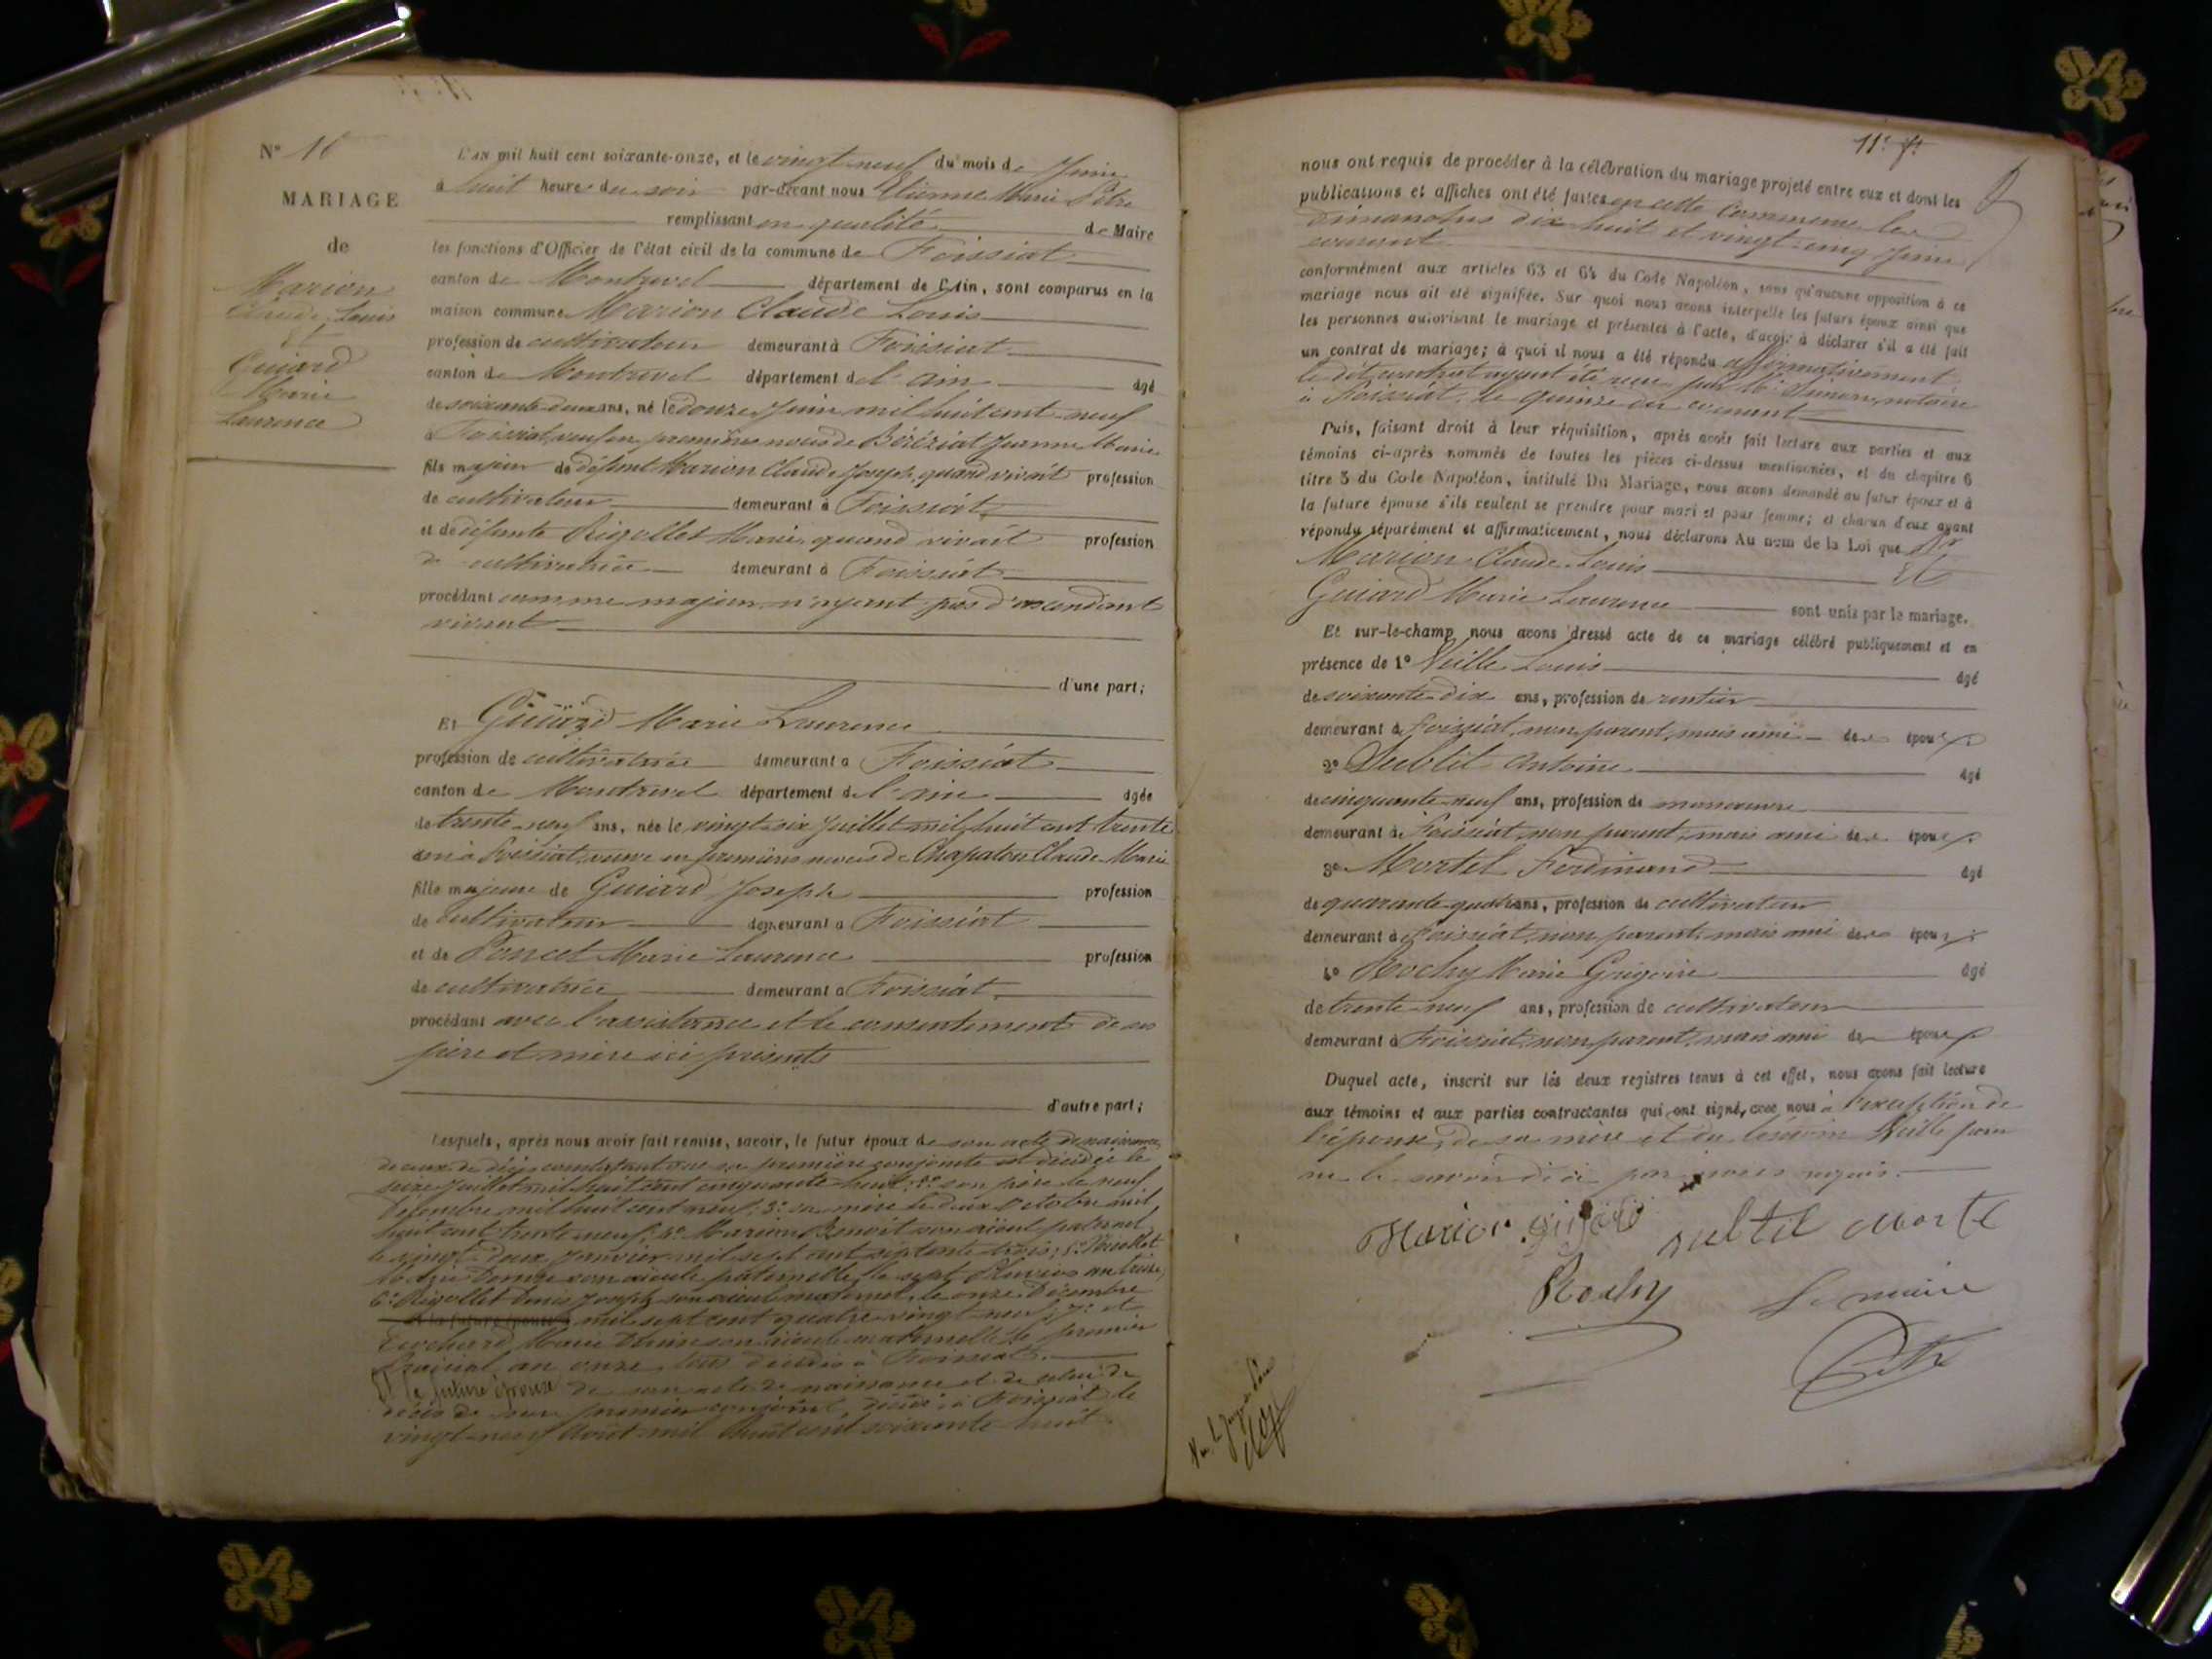 N° 16
MARIAGE
de
Marion
Claude Louis
Et
Guiard
Marie
Laurence
L'AN mil huit cent soixante-onze, et le vingt neuf du mois de Juin
à huit heure du soir par-devant nous Etienne Marie Pitre
remplissant en qualité de Maire
les fonctions d'Officier de l'état civil de la commune de Foissiat
canton de Montrevel département de l'Ain, sont comparus en la
maison commune Marion Claude Louis
profession de cultivateur demeurant à Foissiat
canton de Montrevel département de l'ain âgé
de soixante deux ans, né le douze Juin mil huit cent neuf
à Foissiat, veuf en premières noces de Béréziat Jeanne Marie
fils majeur de défunt Marion Claude Joseph, quand vivait profession
de cultivateur demeurant à Foissiat
et de défunte Rigollet Marie, quand vivait profession
de cultivatrice demeurant à Foissiat
procédant comme majeur, n'ayant pas d'ascendant
vivant
d'une part;
Et Guiard Marie Laurence
profession de cultivatrice demeurant à Foissiat
canton de Montrevel département de l'ain âgée
de trente-neuf ans, née le vingt-six Juillet mil huit cent trente
un à Foissiat, veuve en premières noces de Chapaton Claude Marie
fille majeure de Guiard Joseph profession
de cultivateur demeurant à Foissiat
et de Poncet Marie Laurence profession
de cultivatrice demeurant à Foissiat
procédant avec l'assistance et le consentement de ses
père et mère ici présents
d'autre part;
Lesquels, après nous avoir fait remise, savoir, le futur époux de son acte de naissance,
de ceux de décès constatant que sa première conjointe est décédée le
seize Juillet mil huit cent cinquante huit; 2° son père le neuf
Décembre mil huit cent neuf; 3° sa mère le deux Octobre mil
huit cent trente neuf; 4° Marion Benoit son aïeul paternel
le vingt deux Janvier mil sept cent septante trois; 5°
son aïeule paternelle, le sept Pluviose an treize;
6° Rigollet Denis Joseph son aïeul maternel, le onze Décembre
mil sept cent quatre vingt neuf; 7° et
Marie son aïeule maternelle le premier
Prairial an onze, tous décédés à Foissiat.
Et la future épouse de son acte de naissance et de celui de
décès de son premier conjoint, décédé à Foissiat le
vingt-neuf Août mil huit cent soixante huit
11e ft
nous ont requis de procéder à la célébration du mariage projeté entre eux et dont les
publications et affiches ont été faites en cette Commune les
Dimanches dix huit et vingt-cinq Juin
courant
conformément aux articles 63 et 64 du Code Napoléon, sans qu'aucune opposition à ce
mariage nous ait été signifiée. Sur quoi nous avons interpellé les futurs époux ainsi que
les personnes autorisant le mariage et présentes à l'acte, d'avoir à déclarer s'il a été fait
un contrat de mariage; à quoi il nous a été répondu affirmativement,
le dit contrat ayant été reçu par Me Simon, notaire
à Foissiat, le quinze du courant
Puis, faisant droit à leur réquisition, après avoir fait lecture aux parties et aux
témoins ci-après nommés de toutes les pièces ci-dessus mentionnées, et du chapitre 6
titre 5 du Code Napoléon, intitulé Du Mariage, nous avons demandé au futur époux et à
la future épouse s'ils veulent se prendre pour mari et pour femme; et chacun d'eux ayant
répondu séparément et affirmativement, nous déclarons Au nom de la Loi que
Marion Claude Louis Et
Guiard Marie Laurence sont unis par le mariage.
Et sur-le-champ nous avons dressé acte de ce mariage célébré publiquement et en
présence de 1° Neille Louis âgé
de soixante-dix ans, profession de rentier
demeurant à Foissiat, non parent, mais ami des époux
2° Sublet Antoine âgé
de cinquante-neuf ans, profession de manœuvre
demeurant à Foissiat, non parent, mais ami des époux
3° Mortel Ferdinand âgé
de quarante-quatre ans, profession de cultivateur
demeurant à Foissiat, non parent, mais ami des époux
4° Rochy Marie Grégoire âgé
de trente-neuf ans, profession de cultivateur
demeurant à Foissiat, non parent, mais ami des époux
Duquel acte, inscrit sur les deux registres tenus à cet effet, nous avons fait lecture
aux témoins et aux parties contractantes qui ont signé, avec nous à l'exception de
l'épouse, de sa mère et du témoin Neille pour
ne le savoir, de ce par nous requis.
Marion guiard sublet morte
Rochy Le maire
Pitre